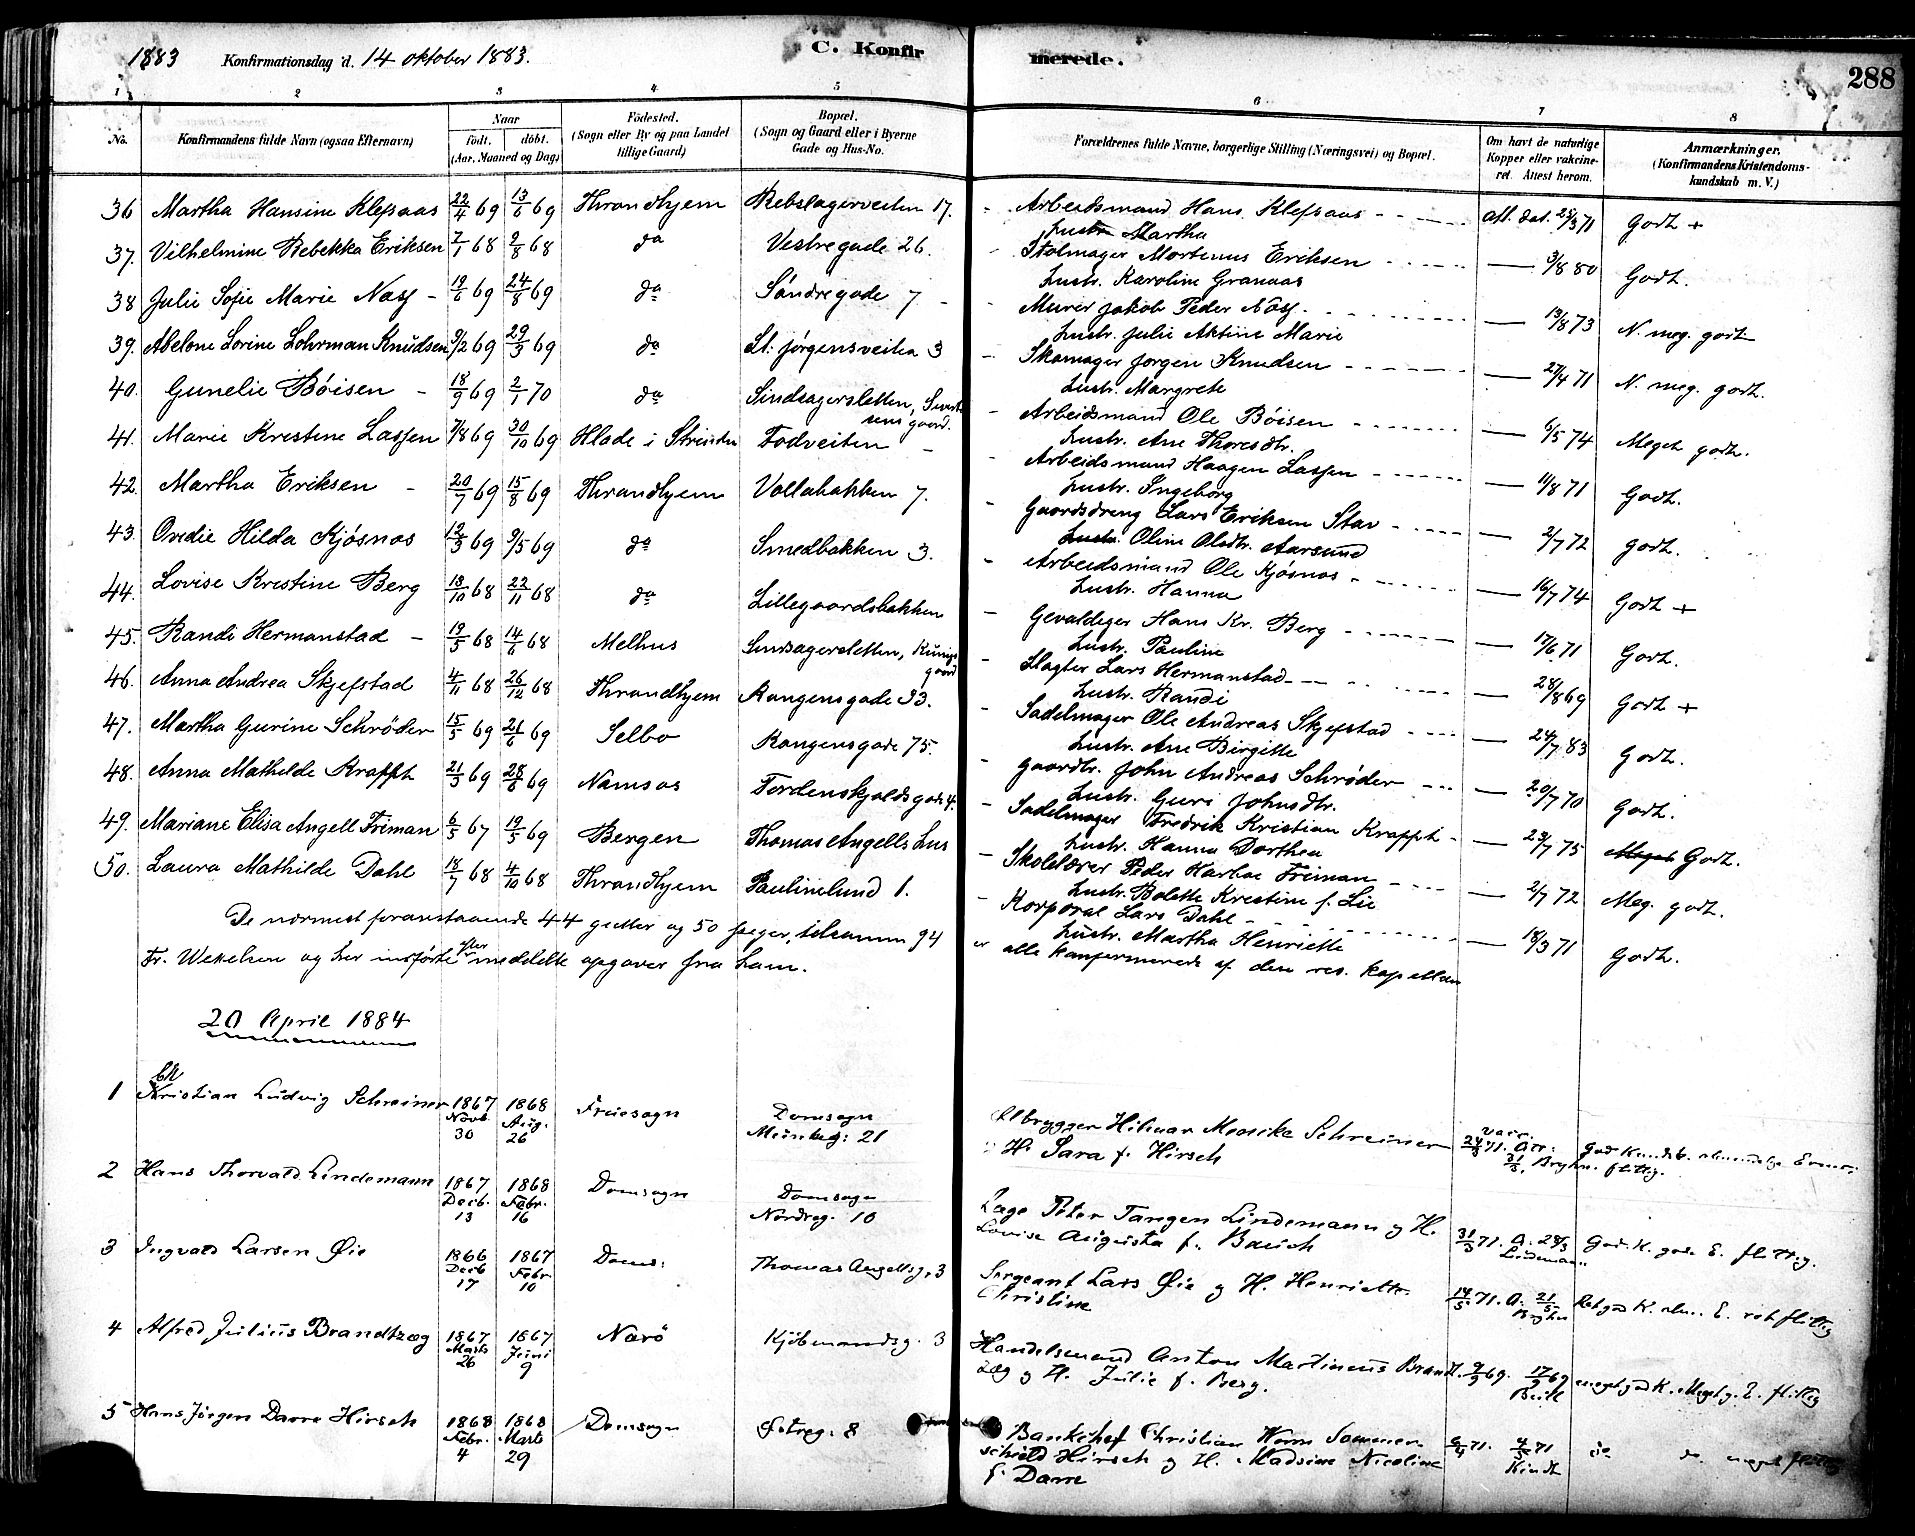 1883 Konfirmationsdag d. 14 oktober 1883. C. Konfirmerede. 288
1 2 3 4 5 6 7 8
No. Konfirmandens fulde Navn (ogsaa Efternavn) Naar födt. döbt. (Aar, Maaned og Dag) Födested. (Sogn eller By og paa Landet tillige Gaard) Bopæl. (Sogn og Gaard eller i Byerne Gade og Hus-No. Forældrenes fulde Navne, borgerlige Stilling (Næringsvei) og Bopæl. Om havt de naturlige Kopper eller vakcineret. Attest herom. Anmærkninger. (Konfirmandens Kristendomskundskab m. V.)
36 Martha Hansine Klefsaas 22/4 69 13/6 69 Thrandhjem Rebslagerveiten 17. Arbeidsmand Hans Klefsaas Hustr. Martha Att. dat. 23/3 71 Godt +
37. Vilhelmine Rebekka Eriksen 7/1 68 9/8 68 do Vestregade 26. Stolmager Mortinus Eriksen Hustr. Karoline Granaas 3/8 80 Godt.
38 Julie Sofie Marie Næss 19/6 69 24/8 69 do Söndregade 7 Murer Jakob Peder Næss Hustr. Julie Aktine Marie 13/8 73 N. meg. godt
39. Abelone Lorine Lohrman Knudsen 9/2 69 29/3 69 do St. Jørgensveiten 3 Skomager Jorgen Knudsen Hustr. Margrete 27/4 71 N. meg. godt.
40. Gunelie Böisen 18/9 69 2/1 70 do Sindsagersletten, gaard. Arbeidsmand Ole Böisen Hustr. Ane Thoresdtr. 6/5 74 Meget godt.
41. Marie Kristine Lassen 7/8 69 30/10 69 Hlade i Strinden Fodveiten Arbeidsmand Haagen Lassen Hustr. Ingeborg 11/8 71 Godt.
42. Martha Eriksen 20/7 69 15/8 69 Thrandhjem Vollabakken 7. Gaardsdreng Lars Eriksen Stav Hustr. Oline Olsdtr. Aarsund 2/7 72 godt.
43. Ovedie Hilda Kjösnæs 12/3 69 9/5 69 do Smedbakken 3. Arbeidsmand Ole Kjösnæs Hustr. Hanna 16/7 74 Godt +
44. Lovise Kristine Berg 13/10 68 22/11 68 do Lillegaardsbakken Gevaldiger Hans Kr. Berg Hustr. Pauline 17/6 71 Godt.
45. Randi Hermanstad 19/5 68 14/6 68 Melhus Sindsagersletten, gaard Slagter Lars Hermanstad Hustr. Randi 28/8 69 Godt +
46. Anna Andrea Skjefstad 4/11 68 26/12 68 Thrandhjem Kongensgade 33. Sadelmager Ole Andreas Skjefstad Hustr. Ane Birgitte 24/7 83 Godt.
47. Martha Gurine Schröder 15/5 69 21/6 69 Selbo Kongensgade 75. Gaardbr. John Andreas Schröder Hustr. Guri Johnsdtr. 20/7 70 Godt.
48. Anna Mathilde Krapfet 21/3 69 28/8 69 Namsos Tordenskjoldsgade 4. Sadelmager Fredrik Kristian Krapfet Hustr. Hanna Dorthea 23/7 75 Meget Godt.
49. Mariane Elisa Angell Friman 6/5 67 19/5 69 Bergen Thomas Angells Hus Skolelærer Peder Harboe Friman Hustr. Bolette Kristine f. Lie 2/7 72 Meg. godt.
50. Laura Mathilde Dahl 18/7 68 4/10 68 Thrandhjem Paulinelund 1. Korporal Lars Dahl Hustr. Martha Henriette 18/3 71 Godt.
De nærmest foranstaaende 44 gutter og 50 piger, tilsammen 94 er alle konfirmerede af den res. kapellan
Fr. Wexelsen og her indførte efter meddelte opgaver fra ham.
20 April 1884
1 Ch Kristian Ludvig Schreiner 1867 Novb 30 1868 Aug. 26 Freiesogn Domsogn Munkeg: 21 Ølbrygger Hilmar Moncke Schreiner H. Sara f. Hirsch vacc. 24/8 71. Att: 31/8, Bryhn flittig.
2 Hans Thorvald Lindemann 1867 Decb. 13 1868 Febr. 16 Domsogn Domsogn Nordreg. 10 Læge Peter Tangen Lindemann og H. Lovise Augusta f. Bauch 31/3 71. A. 28/3 Lindemann God. K. god E. flittig.
3 Ingvald Larsen Öie 1866 Decb 17 1867 Febr 10 Doms: Thomas Angellsg. 3 Sergeant Lars Öie og H. Henriette Christine 14/5 71. A. 21/5 Bryhn Ret god K. alm. E. ret flittig
4 Alfred Julius Brandtzæg 1867 Marts 26 1867 Juni 9 Nærö Kjöbmandsg. 3 Handelsmand Anton Martinius Brandtzæg og H. Julie f. Berg. 9/9 69. 17/9 69 meget god K. Meget g. E. flittig
5 Hans Jörgen Darre Hirsch 1868 Febr. 4 1868 Marts 29 Domsogn Östreg. 8 Bankchef Christian Worm Sommerschield Hirsch og H. Madsine Nicoline f. Darre 6/4 71. 4/5 71 Kindt do do meget flittig